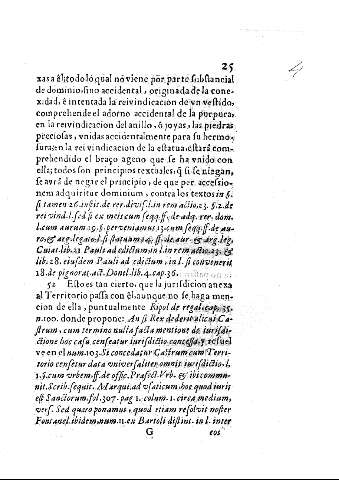 25
xasa è l todo lo qual no viene por parte substancial
de dominio, sino accidental, originada de la cone-
xidad, è intentada la reivindicacion de un vestido,
comprehende el adorno accidental de la purpura,
en la reivindicacion del anillo, ò joyas, las piedras
preciosas, vnidas accidentalmente para su hermo-
sura; en la rei vindicacion de la estatua, estarà com-
prehendido el braço ageno que se ha vnido con
ella; todos son principios textuales, q̃ si se niegan,
se avrà de negar el principio, de que per accessio-
nem adquiritur dominium, contra los textos in §.
si tamen 26. instit. de rer. divis. l. in rem actio 23. §. 2. de
rei vind. l. sed si ex meis cum seqq. ff. de adq. rer. dom.
l. cum aurum 29. §. pervenimus 13. cum seqq. ff. de au-
ro, & arg. legato l. si statuam 14. ff. de aur. & arg. leg.
Cuiat. lib. 21 Pauli ad edictum in l. in rem actio 23. &
lib. 28. eiusdem Pauli ad edictum, in l. si convenerit
18. de pignorat. act. Donel. lib. 4. cap. 36.
52 Esto es tan cierto, que la jurisdicion anexa
al Territorio passa con èl, aunque no se haga men-
cion de ella, puntualmente Ripol de regal. cap. 35.
n. 100. donde propone: An si Rex dederit alicui Ca-
strum, cum termino nulla facta mentione de iurisdi-
ctione hoc casu censeatur iurisdictio concessa, y resuel
ve en el num. 103. Si concedatur Castrum cum Terri-
torio censetur data universaliter omnis iurisdictio. l.
1. §. cum vrbem. ff. de offic. Præfect. Vrb. & ibi comm-
nit. Scrib. sequit. Marqui. ad vsaticum hoc quod iuris
est Sanctorum, fol. 307. pag 1. colum. 1. circa medium,
vers. Sed quero ponamus, quod etiam resolvit noster
Fontanel. ibidem num. 11. ex Bartoli distint. in l. inter
G eos